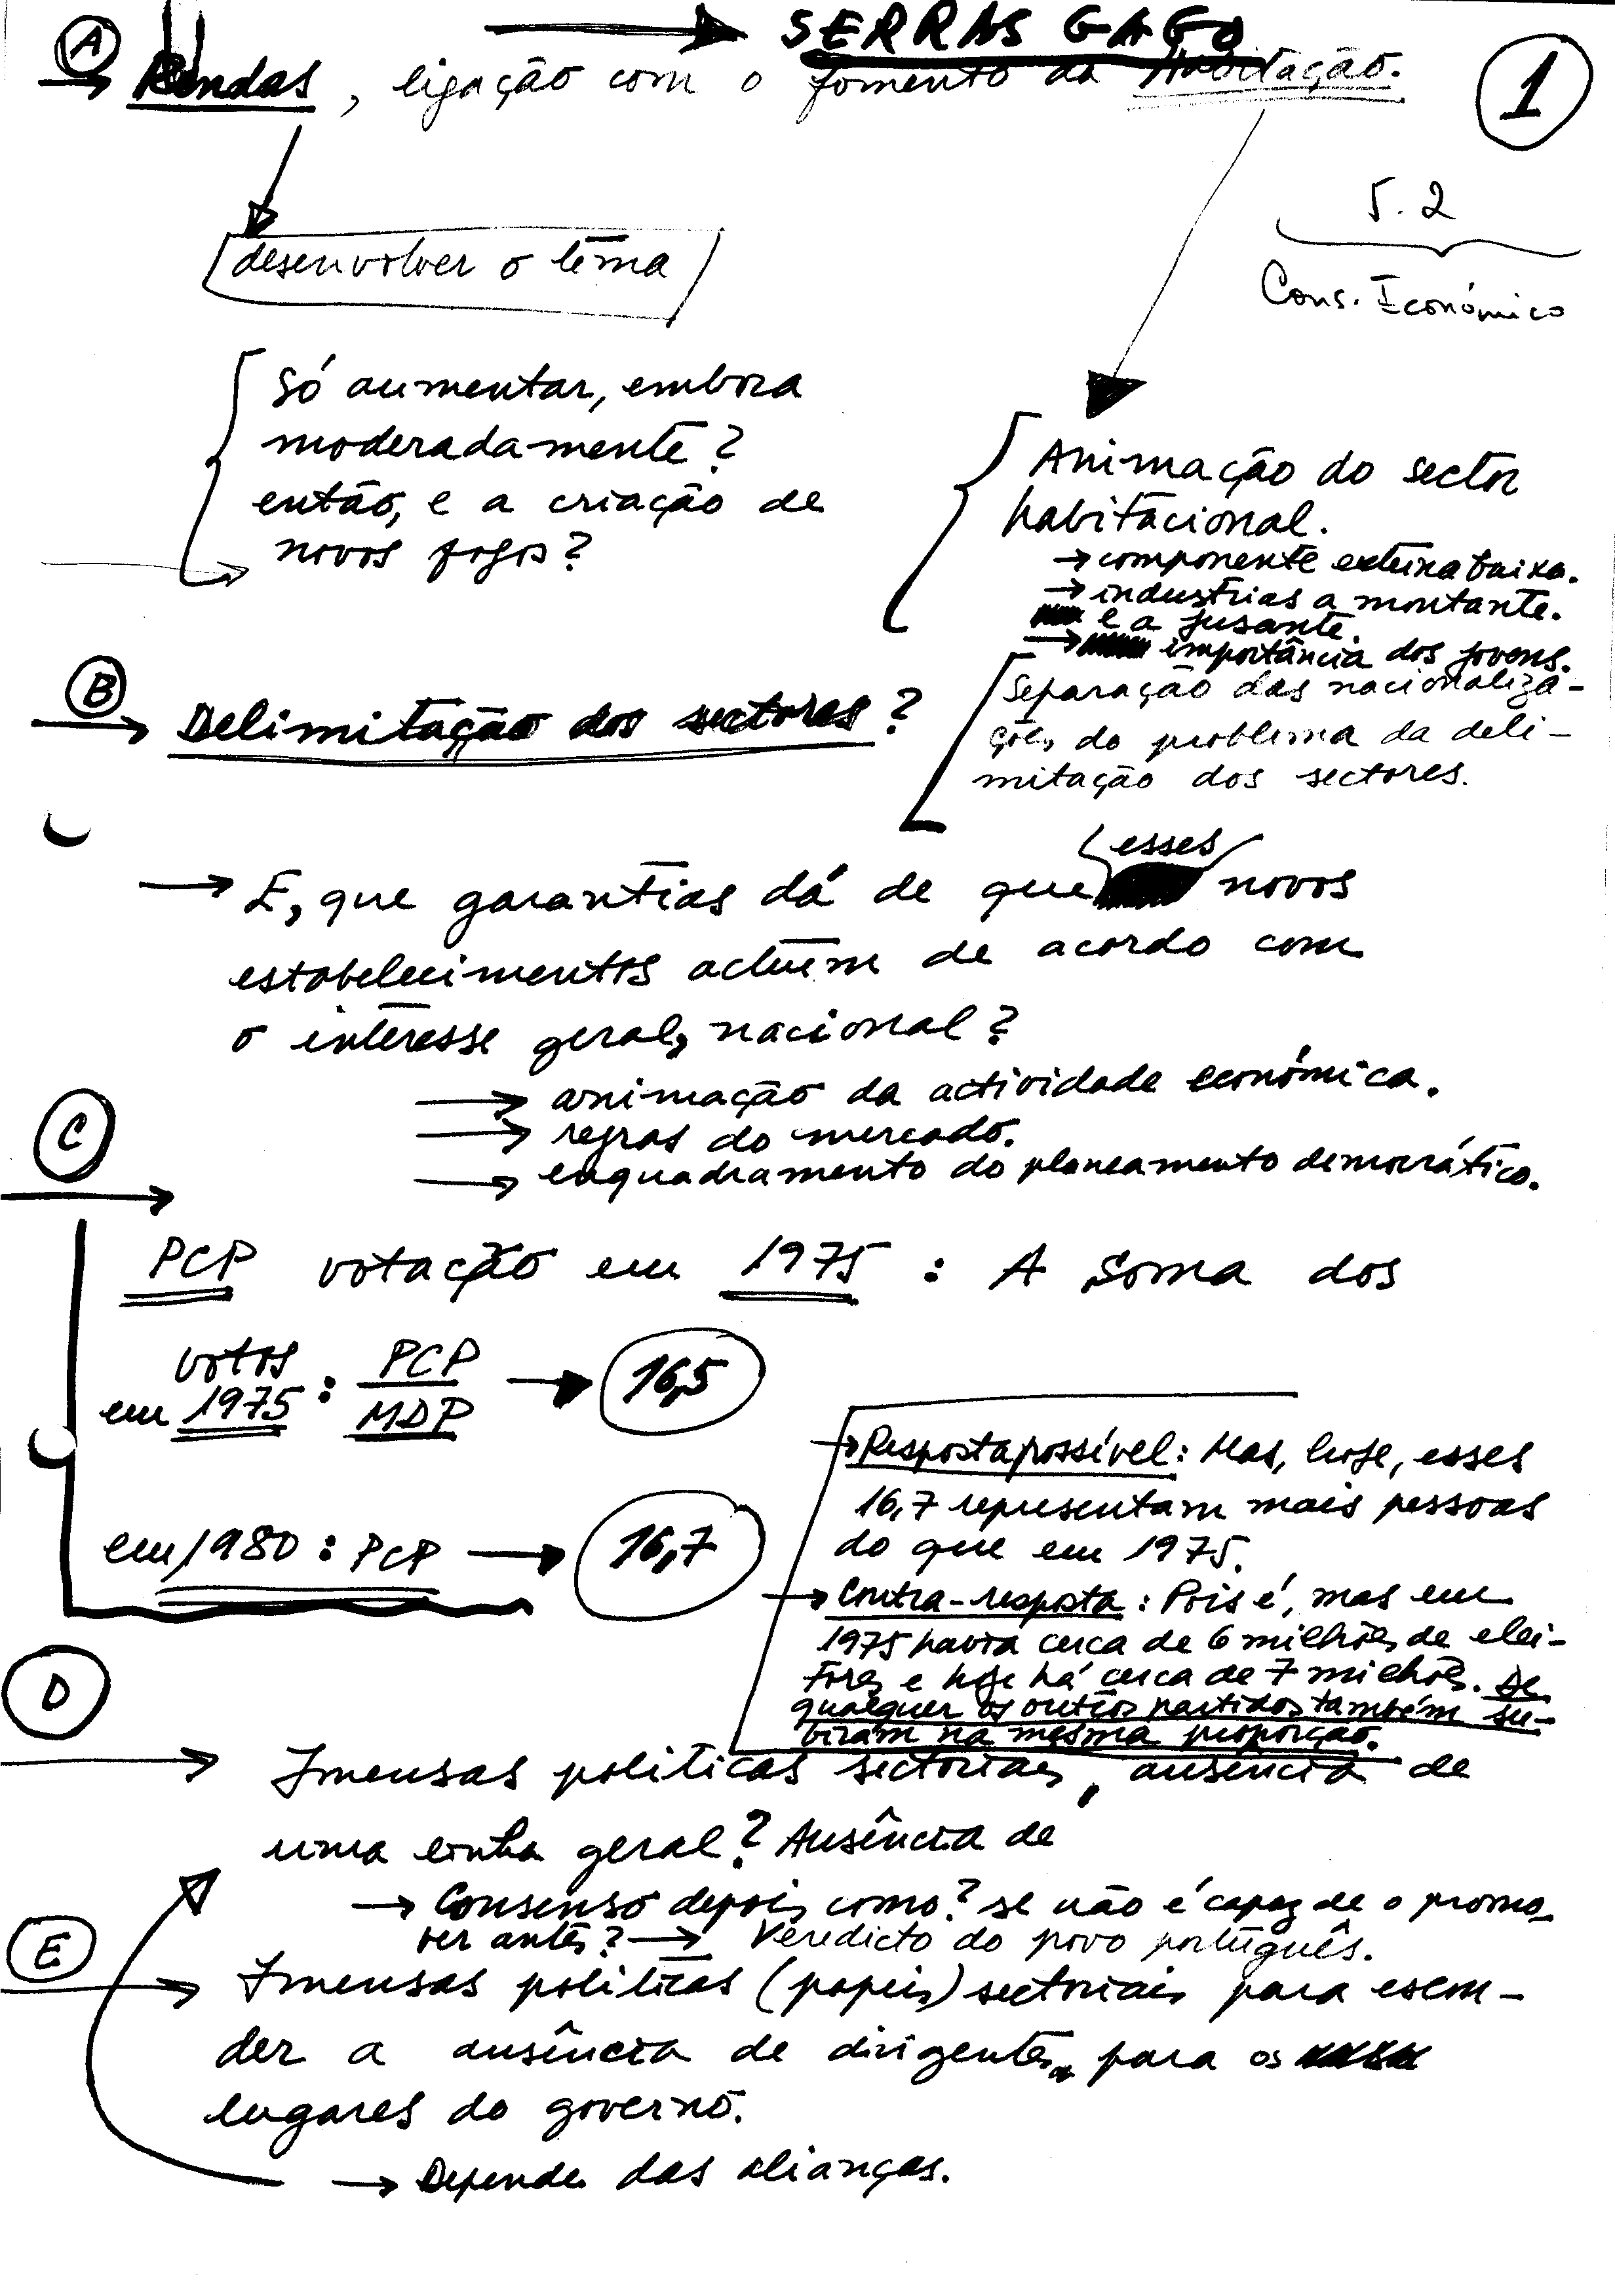 → SERRAS GAGO
Ⓐ → Rendas, ligação com o fomento da Habitação.
①
5.2
Cons. Económico
desenvolver o tema
Só aumentar, embora
moderadamente?
então, e a criação de
novos fogos?
Animação do sector
habitacional.
→ componente externa baixa.
→ industrias a montante.
e a jusante.
→ importância dos jovens.
Ⓑ → Delimitação dos sectores?
Separação das nacionaliza-
ções do problema da deli-
mitação dos sectores.
esses
→ E, que garantias dá de que novos
estabelecimentos actuem de acordo com
o interesse geral, nacional?
→ animação da actividade económica.
→ regras do mercado.
→ enquadramento do planeamento democrático.
Ⓒ →
PCP votação em 1975 : A soma dos
votos
em 1975 : PCP
MDP → 16,5
em 1980 : PCP → 16,7
→ Resposta possível: Mas, hoje, esses
16,7 representam mais pessoas
do que em 1975.
→ Contra-resposta: Pois é, mas em
1975 havia cerca de 6 milhões de elei-
tores e hoje há cerca de 7 milhões. De
qualquer os outros partidos também su-
biram na mesma proporção.
Ⓓ → Imensas politicas sectoriais, ausência de
uma linha geral? Ausência de
→ Consenso depois, como? se não é capaz de o promo-
ver antes? → Veredicto do povo português.
Ⓔ → Imensas politicas (papeis) sectoriais para escon-
der a ausência de dirigentes para os
lugares do governo.
→ Depende das alianças.